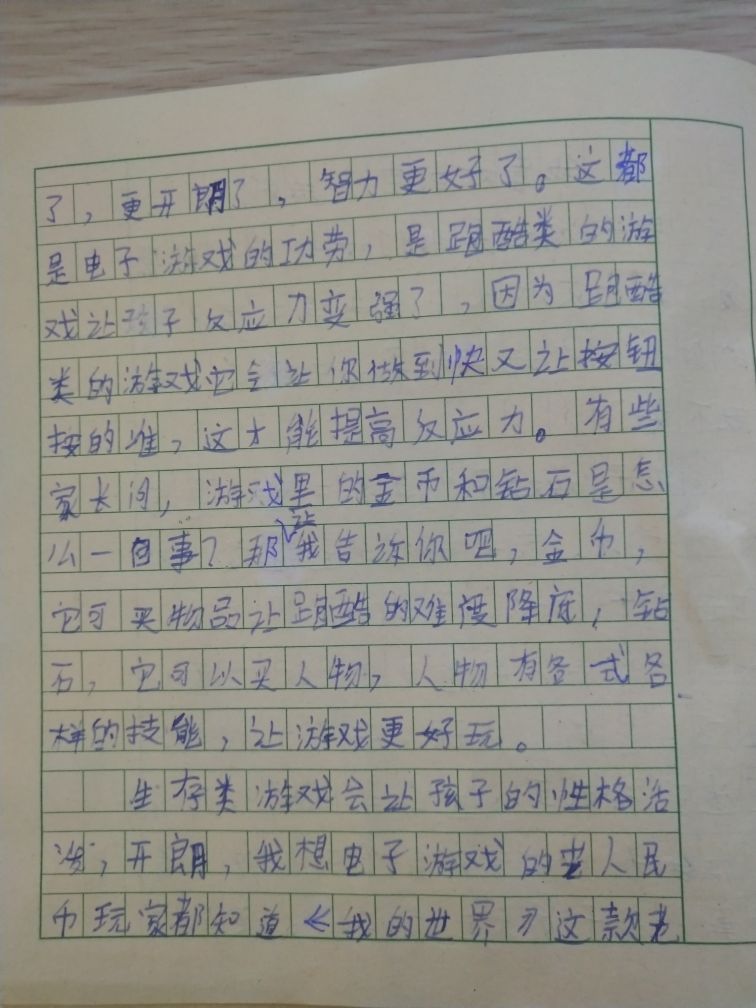 了，更开朗了，智力更好了。这都
是电子游戏的功劳，是跑酷类的游
戏让孩子反应力变强了，因为跑酷
类的游戏它会让你做到快又让按钮
按的准，这才能提高反应力。有些
家长问，游戏里的金币和钻石是怎
么一回事？那让我告诉你吧，金币，
它可买物品让跑酷的难度降底，钻
石，它可以买人物，人物有各式各
样的技能，让游戏更好玩。
生存类游戏会让孩子的性格活
泼，开朗，我想电子游戏的老人民
币玩家都知道《我的世界》这款老